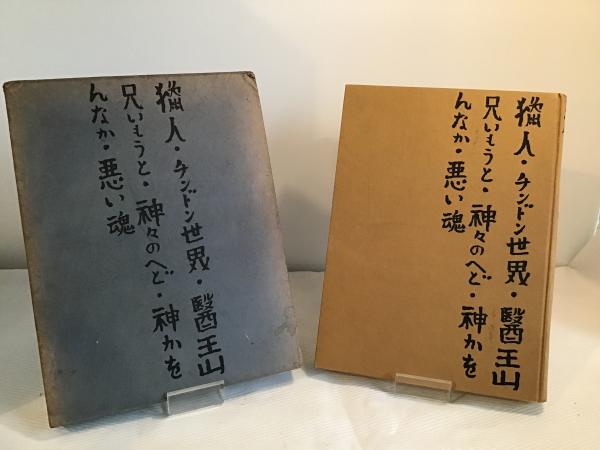 獵人・チンドン世界・醫王山
兄いもうと・神々のへど・神かを
んなか・悪い魂
獵人・チンドン世界・醫王山
兄いもうと・神々のへど・神かを
んなか・悪い魂